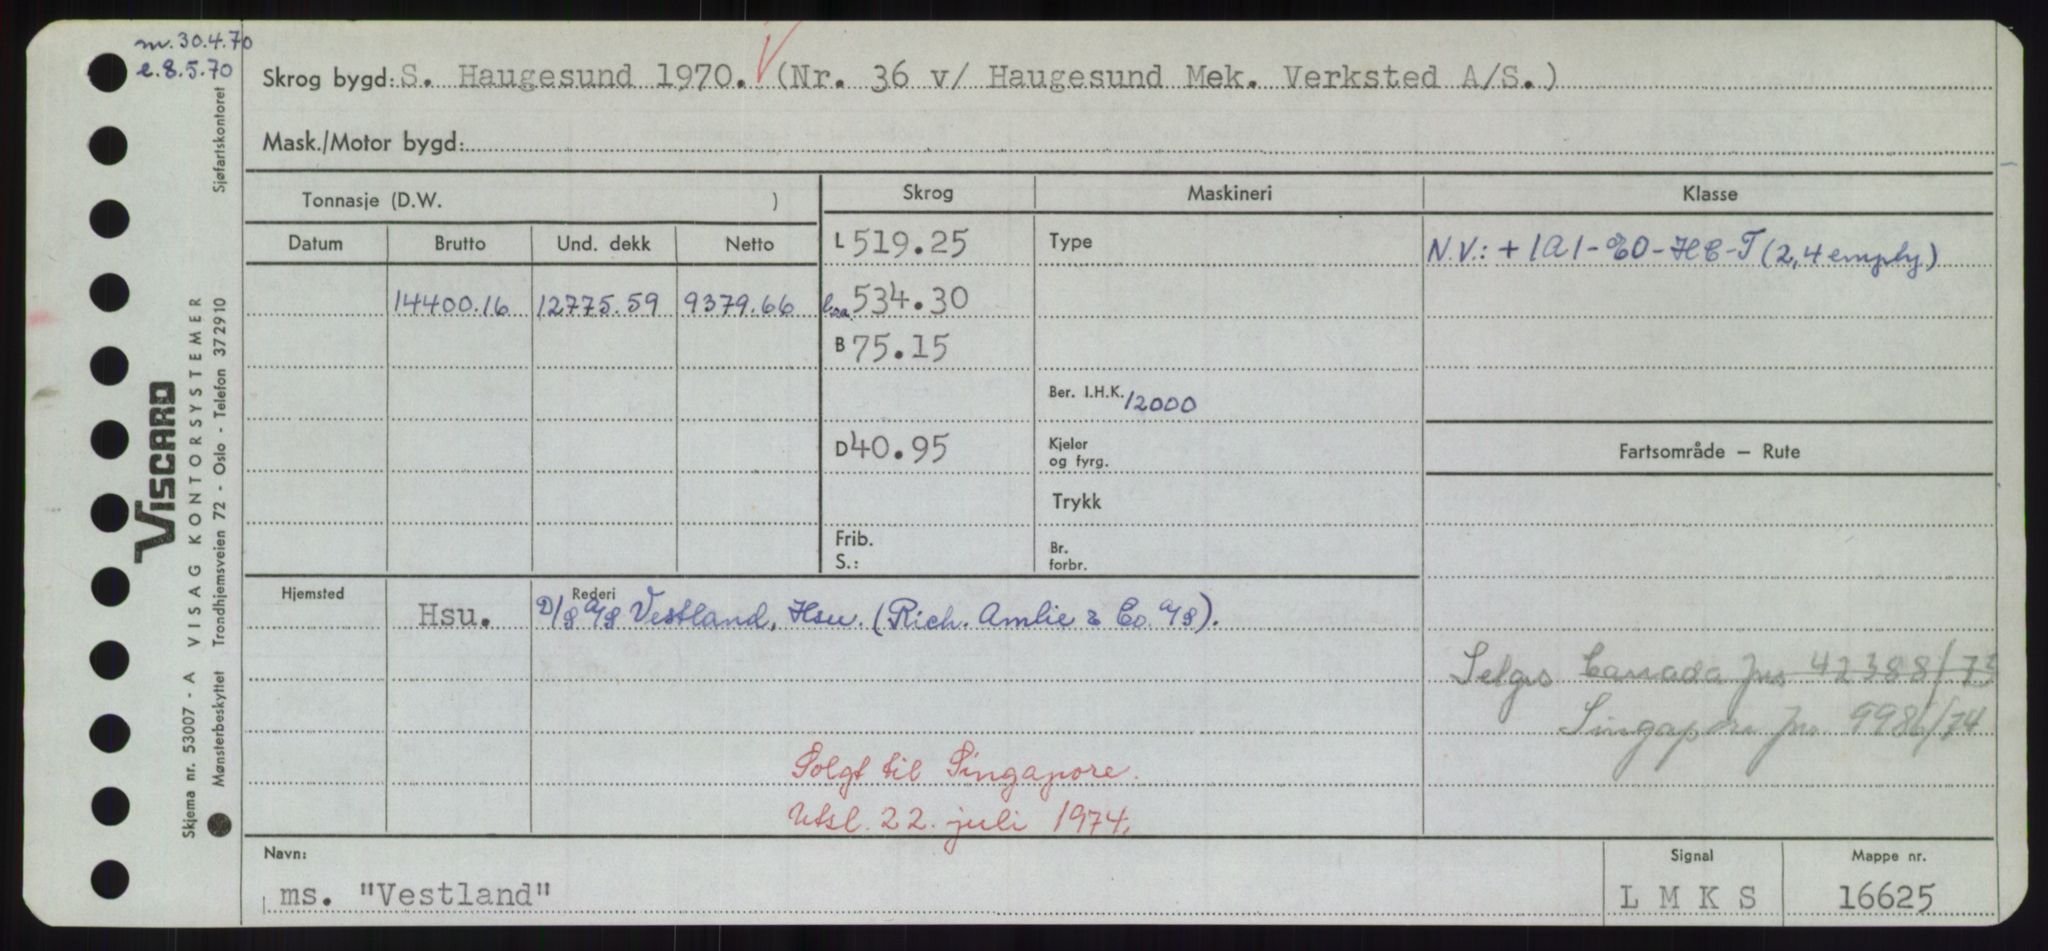 m. 30.4.70
e. 8.5.70
Skrog bygd: S. Haugesund 1970. (Nr. 36 v/ Haugesund Mek. Verksted A/S.)
Mask./Motor bygd:
Tonnasje (D.W. )
Skrog
Maskineri
Klasse
Datum
Brutto
Und. dekk
Netto
L 519.25
Type
N.V.: + 1A1-EO-HC-T (2,4 empty)
14400.16
12775.59
9379.66
534.30
B 75.15
Ber. I.H.K. 12000
D 40.95
Kjeler
og fyrg.
Fartsområde — Rute
Trykk
Frib.
S.:
Br.
forbr.
Hjemsted
Rederi
Hsu.
D/S A/S Vestland, Hsu. (Rich. Amlie & Co. A/S).
Selges Canada jnr. 42388/73
Singapore jnr. 9986/74
Solgt til Singapore.
Utsl. 22. juli 1974.
Navn:
ms. "Vestland"
Signal
L M K S
Mappe nr.
16625
VISCARD
VISAG KONTORSYSTEMER
Skjema nr. 53007 - A
Mønsterbeskyttet
Trondhjemsveien 72 - Oslo - Telefon 372910
Sjøfartskontoret